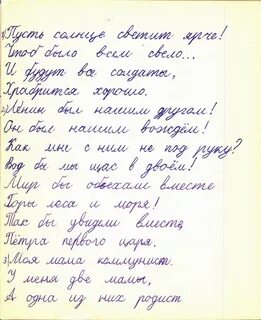 1) Пусть солнце светит ярче!
Чтоб было всем свело...
И будут все солдаты,
Храбрится хорошо.
2) Ленин был нашим другом!
Он был нашим вождём!
Как мне с ним не под руку?
Вод бы мы щас в двоём!
Мир бы обьехали вместе
Горы леса и моря!
Так бы увидели вместе
Пётра первого царя.
3) Моя мама коммунист.
У меня две мамы,
А одна из них родист